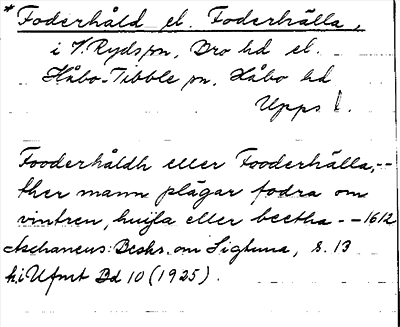 *Foderhåld el. Foderhälla,
i V. Ryds sn, Bro hd el.
Håbo-Tibble sn, Håbo hd
Upps l.
Fooderhåldh eller Fooderhälla,--
ther mann plägar fodra om
vintren, huijla eller beetha -- 1612
Aschaneus: Beskr. om Sigtuna, s. 13
hi Ufmt Bd 10 (1925).